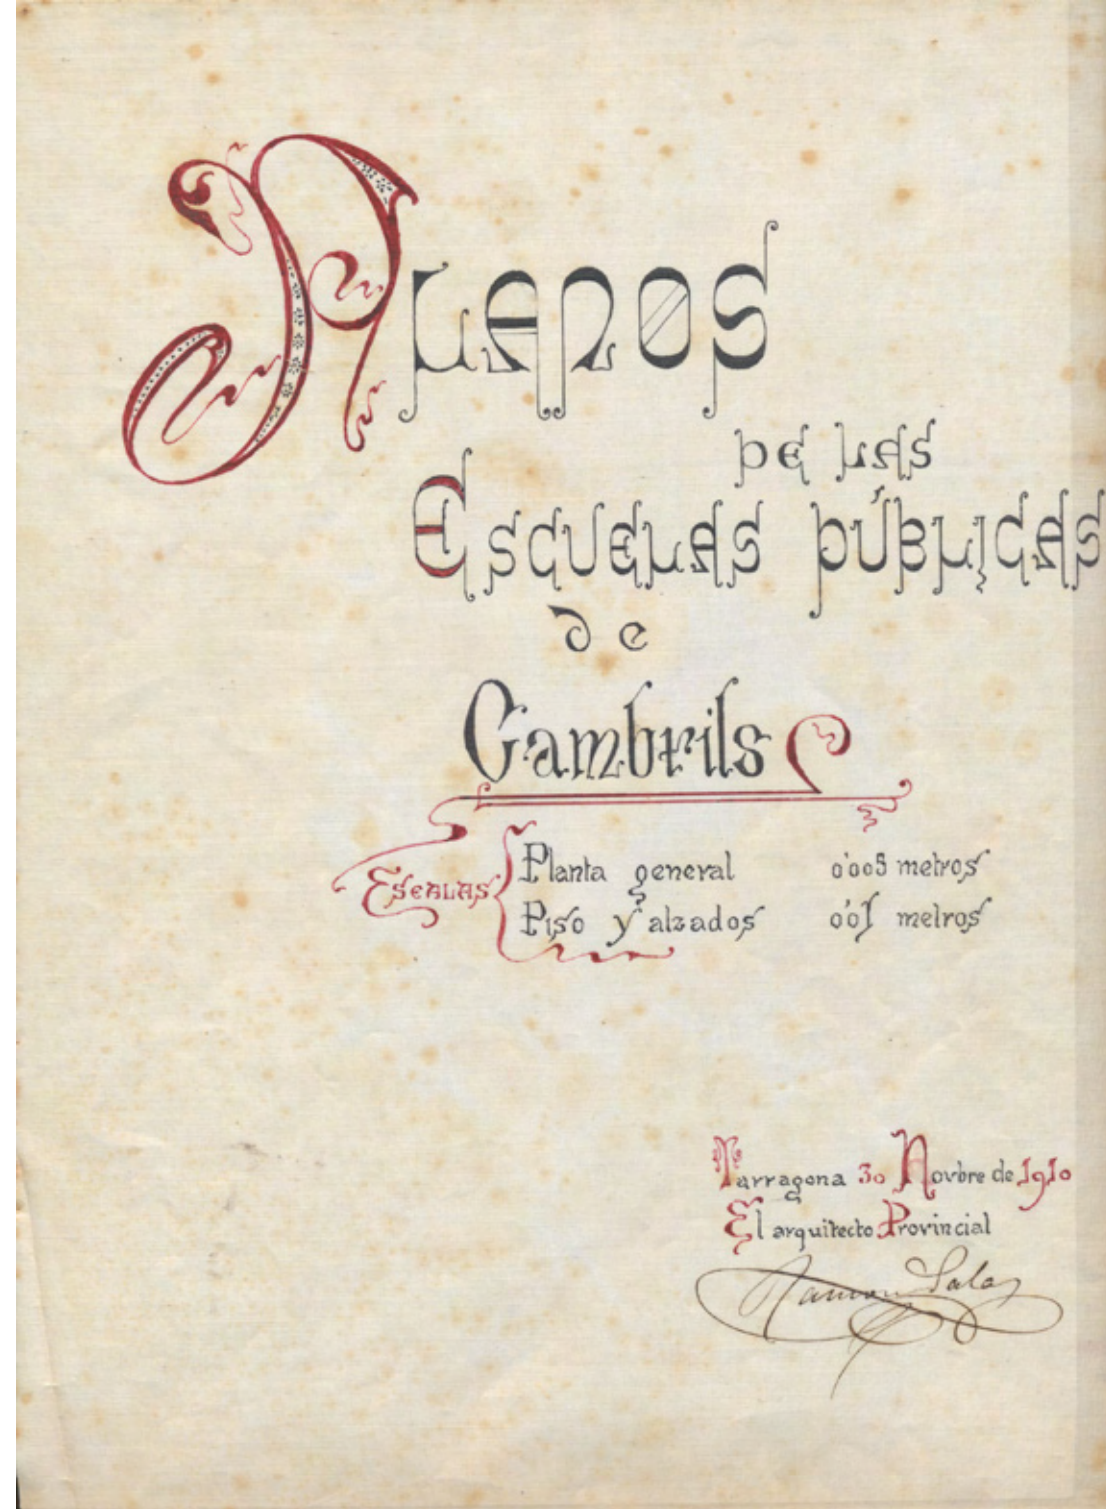 Planos
de las
Escuelas Públicas
de
Cambrils
Escalas
Planta general 0'005 metros
Piso y alzados 0'01 metros
Tarragona 30 Novbre de 1910
El arquitecto Provincial
Ramon Salas